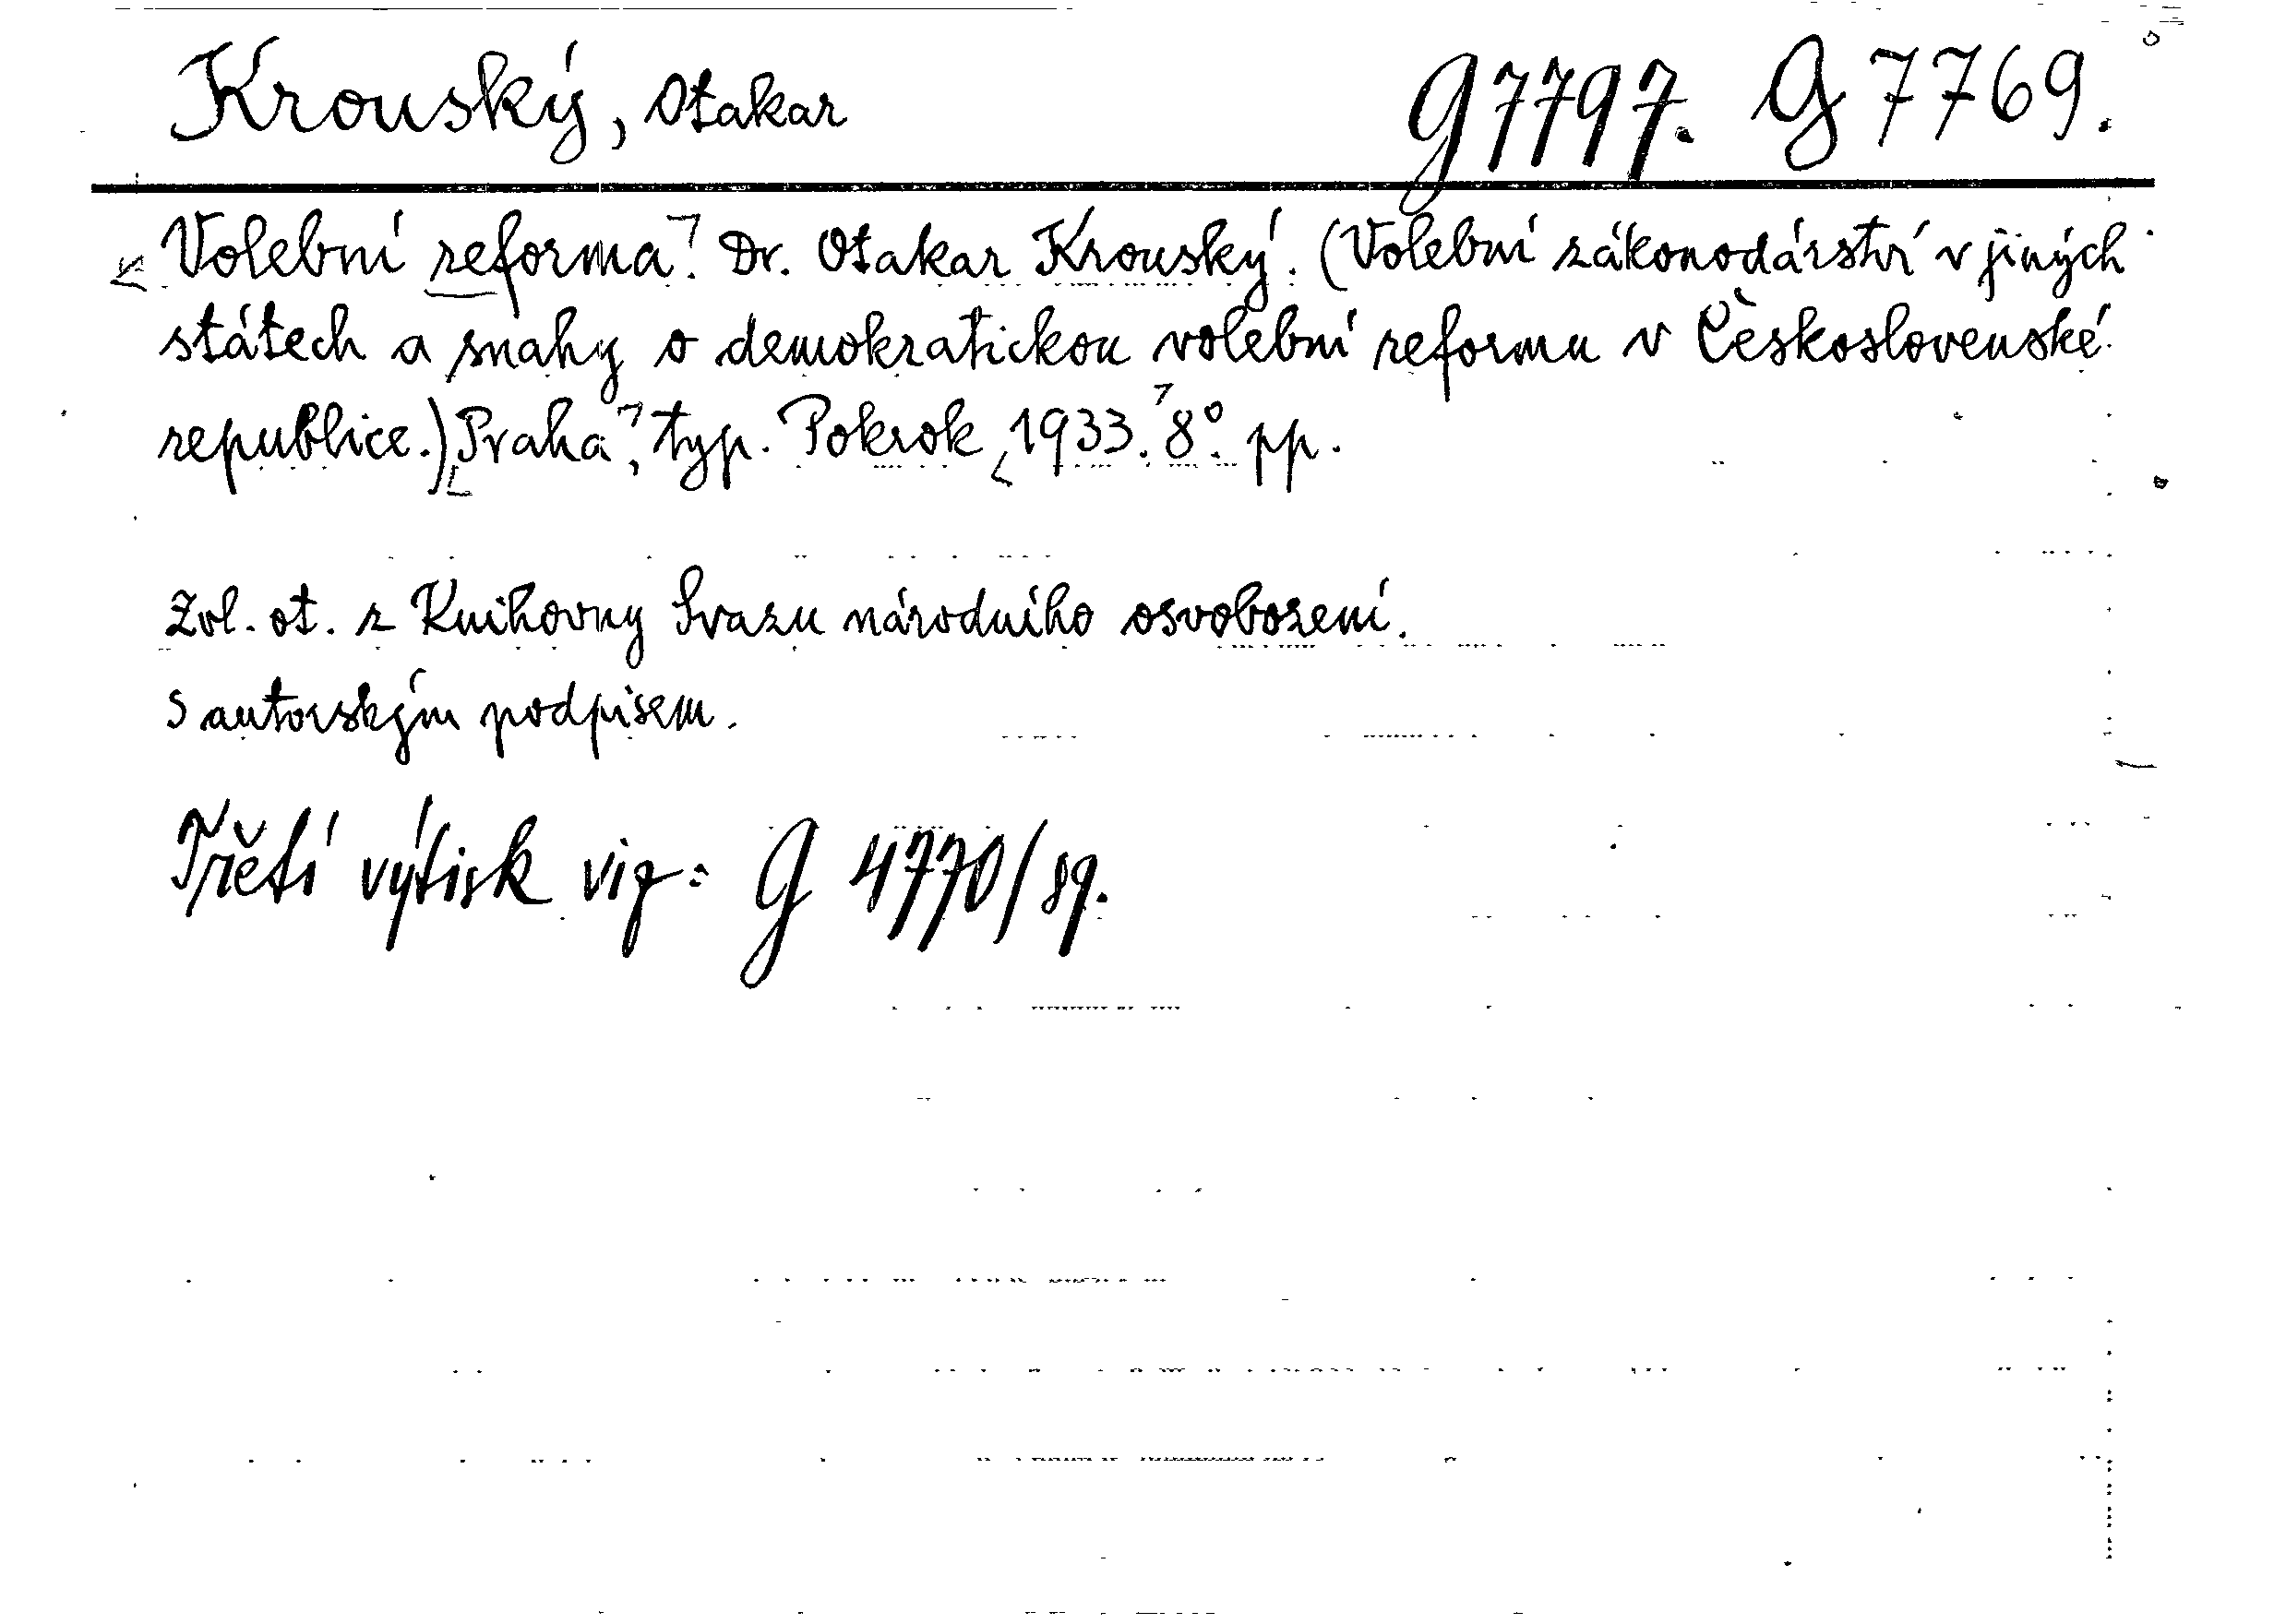 Krouský, Otakar G 7797. G 7769.
Volební reforma. Dr. Otakar Krouský. (Volební zákonodárství v jiných
státech a snahy o demokratickou volební reformu v Československé
republice.) Praha, typ. Pokrok 1933. 8°. pp.
Zvl. ot. z Knihovny Svazu národního osvobození.
S autorským podpisem.
Třetí výtisk viz: G 4770/89.